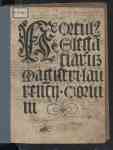 Hortulꝰ
Elega
tiarum
magistri lau
rentij Corui
ni